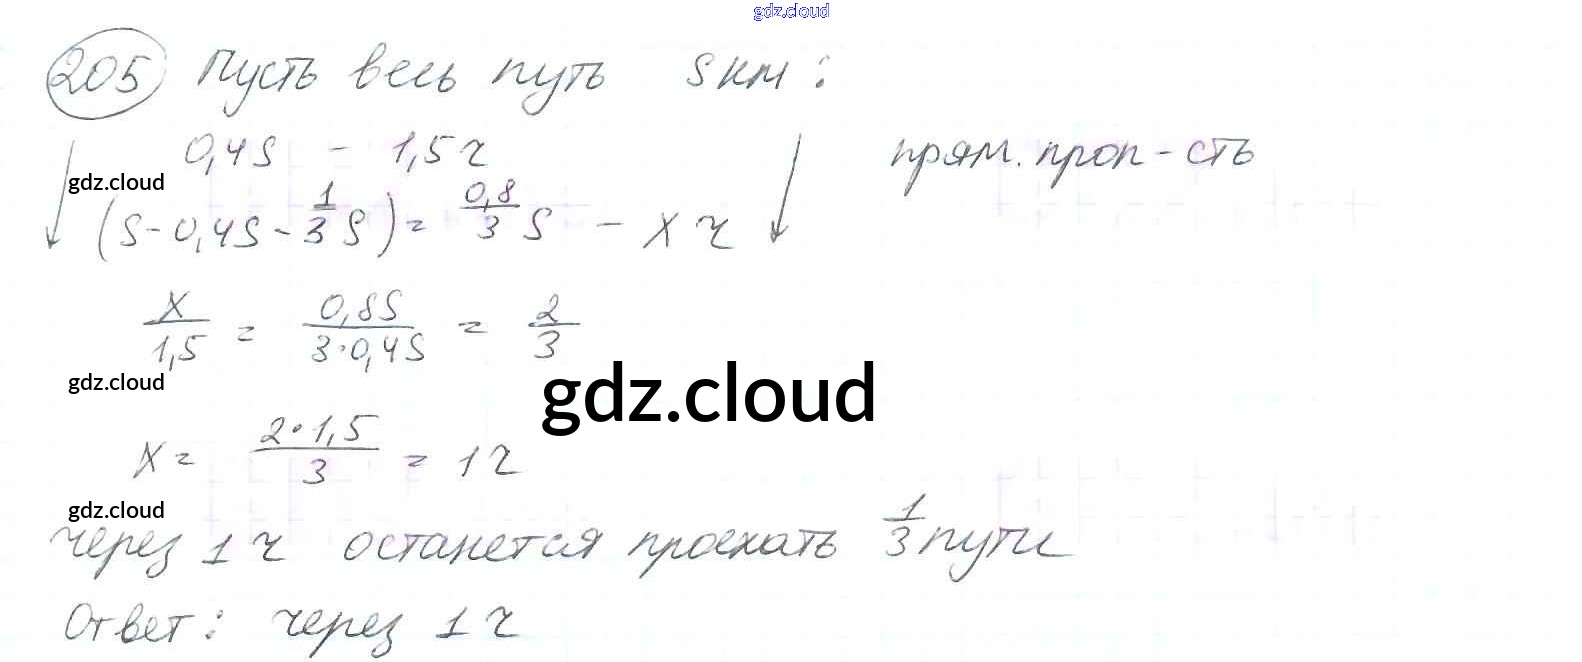 gdz.cloud
205 Пусть весь путь S км:
0,4S - 1,5 ч прям. проп-сть
gdz.cloud
(S-0,4S-1/3 S) = 0,8/3 S - x ч
x/1,5 = 0,8S/3·0,4S = 2/3
gdz.cloud
gdz.cloud
x = 2·1,5/3 = 1 ч
gdz.cloud
через 1 ч останется проехать 1/3 пути
Ответ: через 1 ч